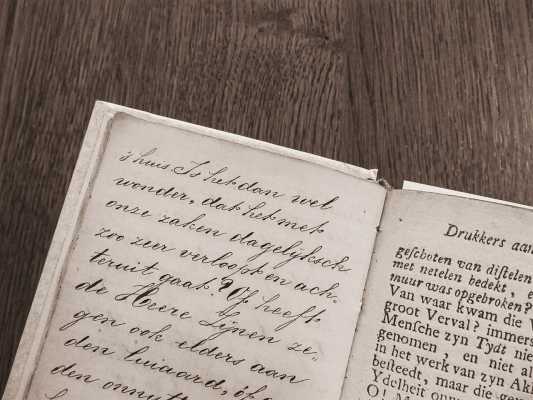 's huis. Is het dan wel
wonder, dat het met
onze zaken dagelijksch
zoo zeer verloopt en ach-
teruit gaat? Of heeft
de Heere Zijnen ze-
gen ook elders aan
den luiaard, óf aan
den onnutt
Drukkers aan
geſchoten van diſtelen
met netelen bedekt, e
muur was opgebroken?
Van waar kwam die V
groot Verval? immers
Menſche zyn Tydt nie
genomen, en niet al
in het werk van zyn Akk
beſteedt, maar die gev
Ydelheit onnu
O! M